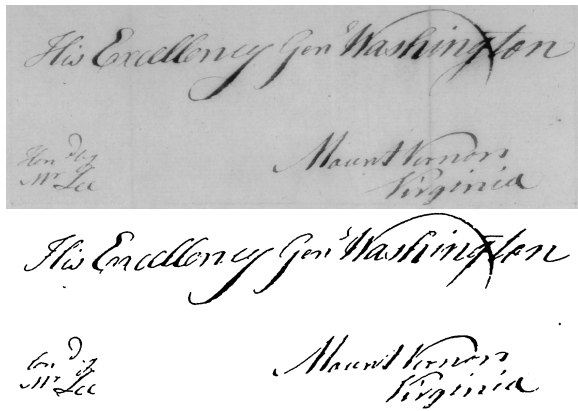 His Excellency Genl Washington
Hond by
Mr Lee
Mount Vernon
Virginia
His Excellency Genl Washington
Mr Lee
Mount Vernon
Virginia